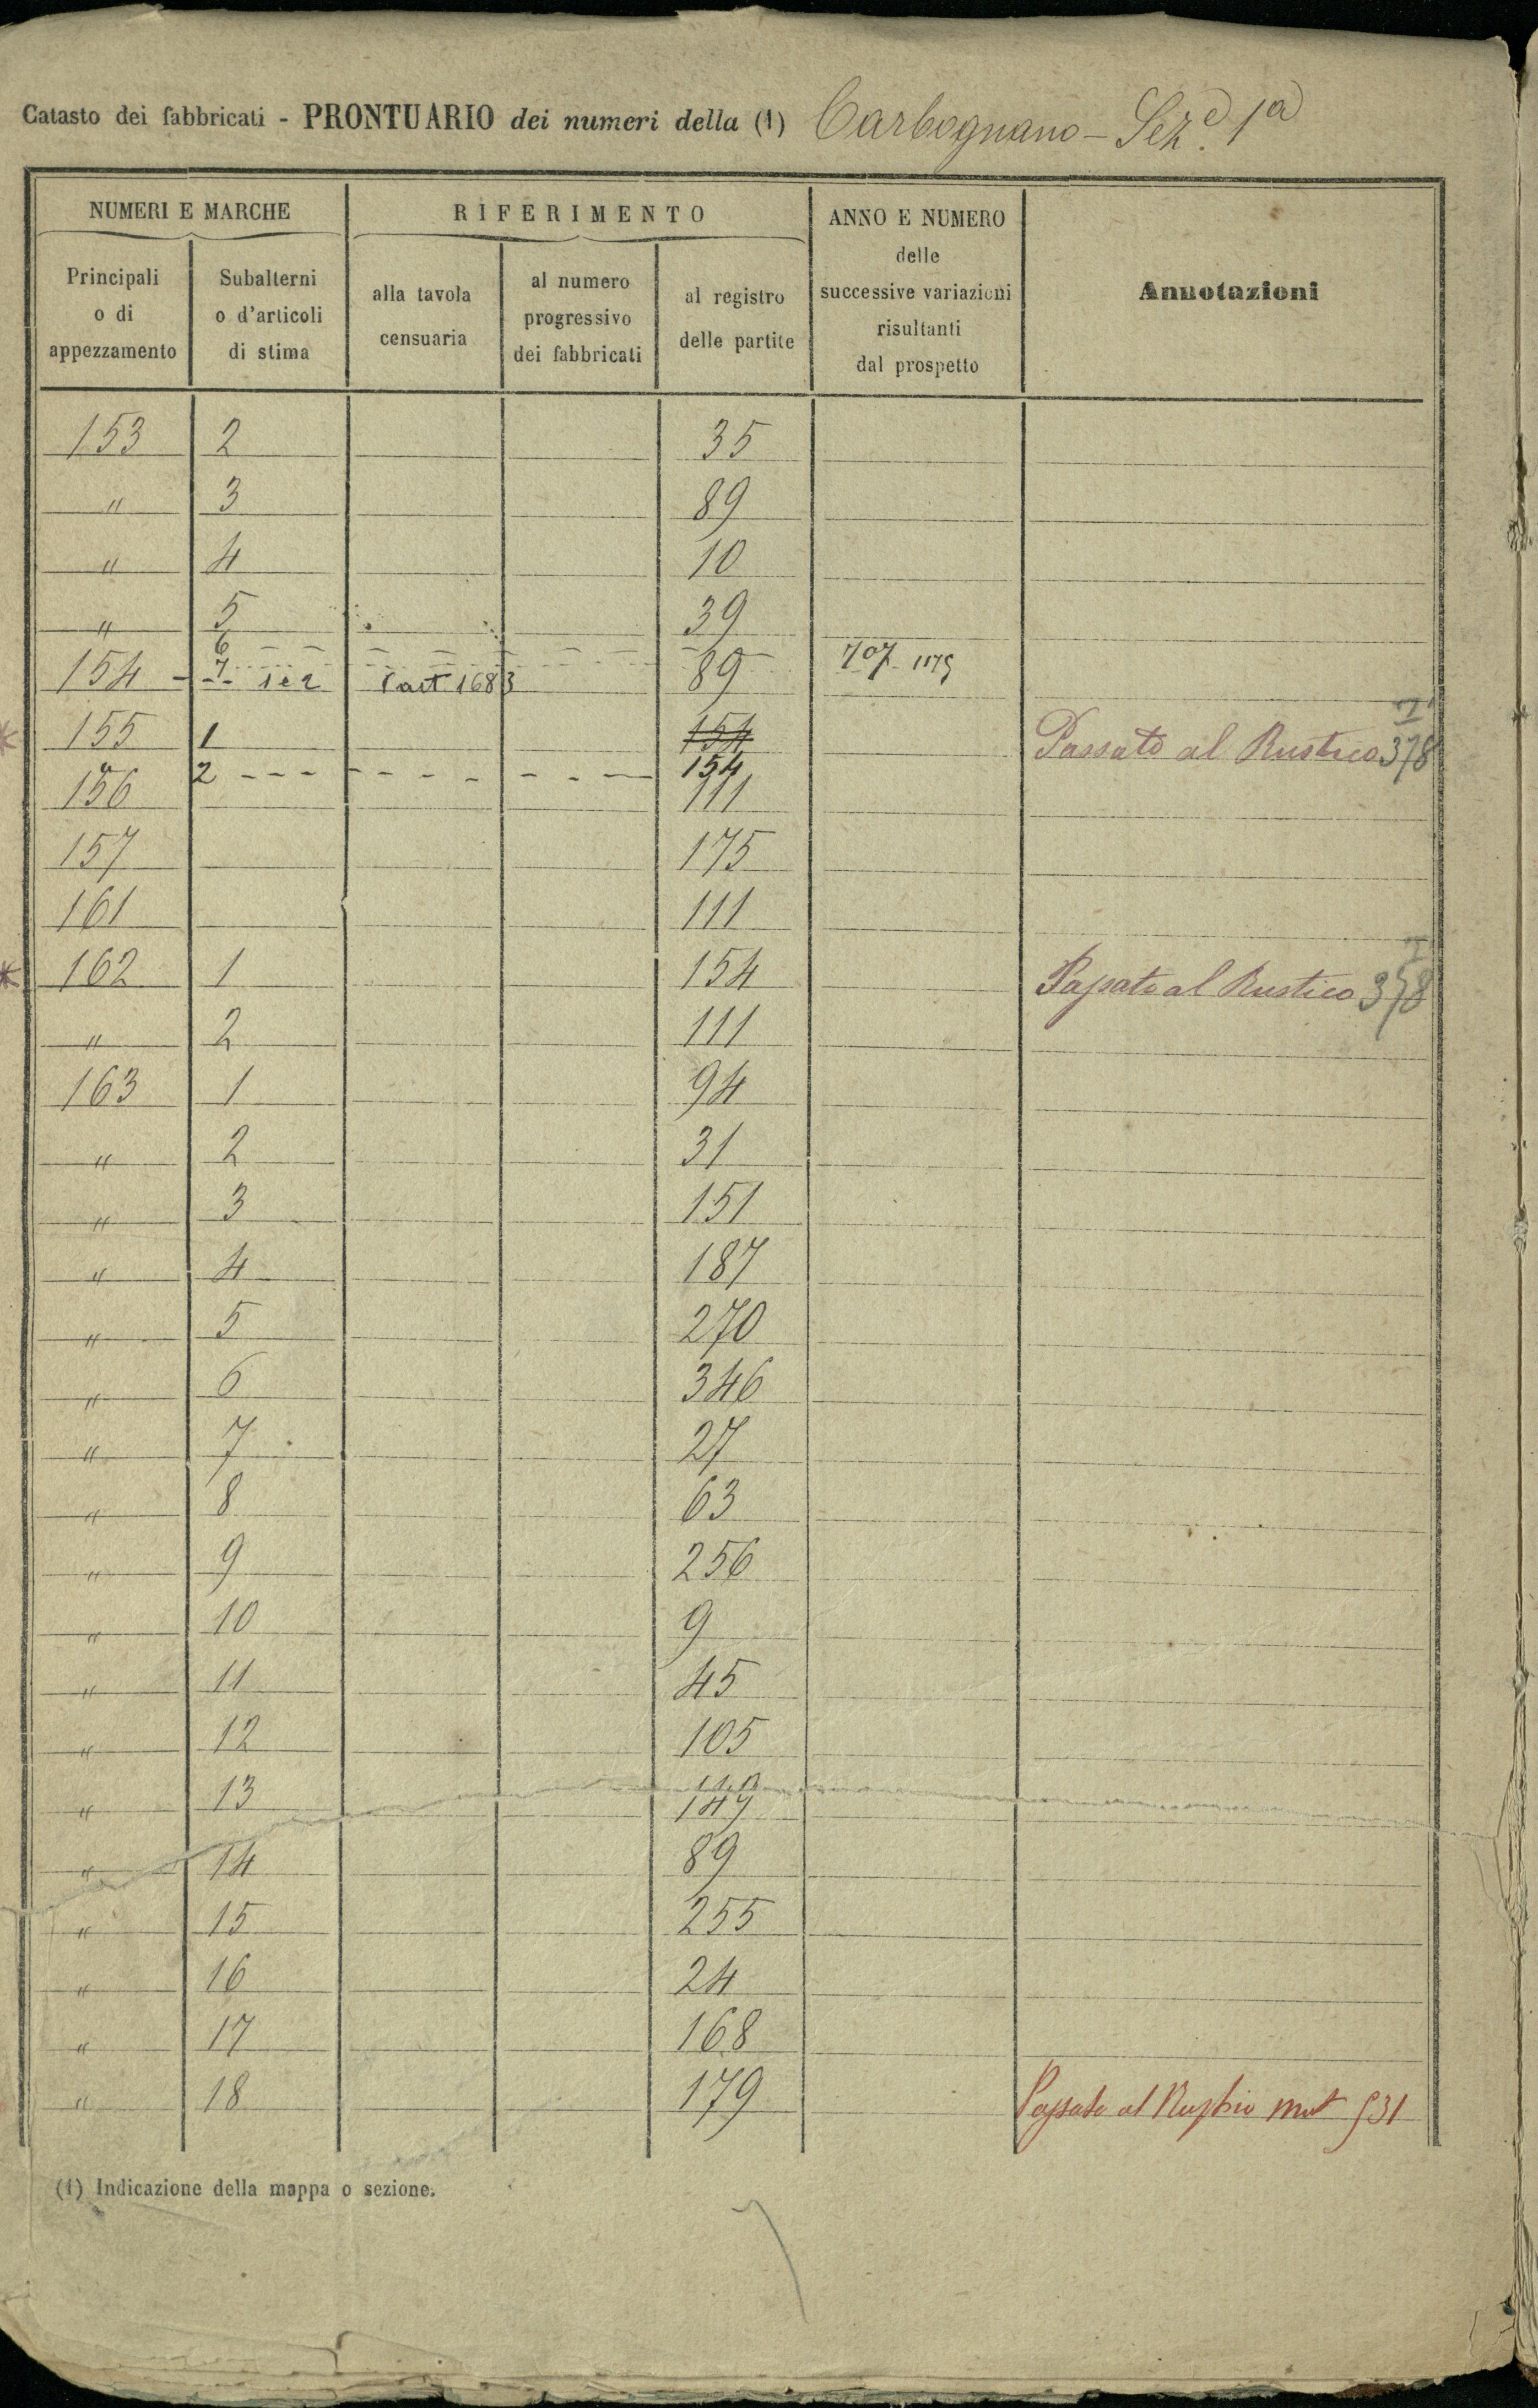 Catasto dei fabbricati - PRONTUARIO dei numeri della (1) Carbognano - Sez.e 1a
NUMERI E MARCHE
RIFERIMENTO
ANNO E NUMERO
delle
successive variazioni
risultanti
dal prospetto
Annotazioni
Principali
o di
appezzamento
Subalterni
o d'articoli
di stima
alla tavola
censuaria
al numero
progressivo
dei fabbricati
al registro
delle partite
153 2 35
" 3 89
" 4 10
" 5 39
6
154 - 7 1 e 2 1683 89 707 - 1175
155 1 154 Passato al Rustico 378
" 2 154
156 111
157 175
161 111
162 1 154 Passato al Rustico 378
" 2 111
163 1 94
" 2 31
" 3 151
" 4 187
" 5 270
" 6 346
" 7 27
" 8 63
" 9 256
" 10 9
" 11 45
" 12 105
" 13 149
" 14 89
" 15 255
" 16 24
" 17 168
" 18 179 Passato al Rustico mut 531
(1) Indicazione della mappa o sezione.